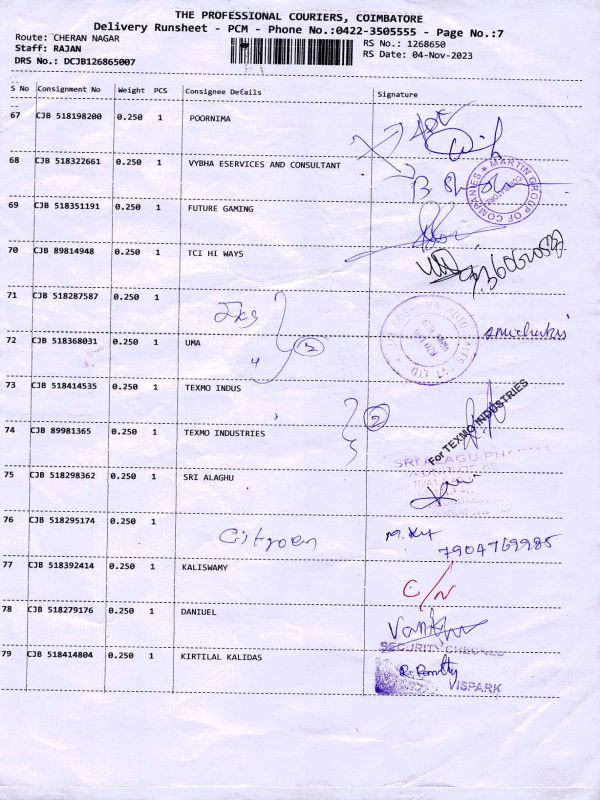 THE PROFESSIONAL COURIERS, COIMBATORE
Delivery Runsheet - PCM - Phone No.:0422-3505555 - Page No.:7
Route: CHERAN NAGAR RS No.: 1268650
Staff: RAJAN RS Date: 04-Nov-2023
DRS No.: DCJB126865007
S No Consignment No Weight PCS Consignee Details Signature
67 CJB 518198200 0.250 1 POORNIMA
68 CJB 518322661 0.250 1 VYBHA ESERVICES AND CONSULTANT
MARTIN GROUP OF COMPANIES
69 CJB 518351191 0.250 1 FUTURE GAMING
70 CJB 89814948 0.250 1 TCI HI WAYS
71 CJB 518287587 0.250 1
72 CJB 518368031 0.250 1 UMA
73 CJB 518414535 0.250 1 TEXMO INDUS
For TEXMO INDUSTRIES
74 CJB 89981365 0.250 1 TEXMO INDUSTRIES 2
SRI ALAGU
75 CJB 518298362 0.250 1 SRI ALAGHU
76 CJB 518295174 0.250 1
Citroen 7904769985
77 CJB 518392414 0.250 1 KALISWAMY
C/N
78 CJB 518279176 0.250 1 DANIUEL
SECURITY CHECKED
79 CJB 518414804 0.250 1 KIRTILAL KALIDAS
VISPARK